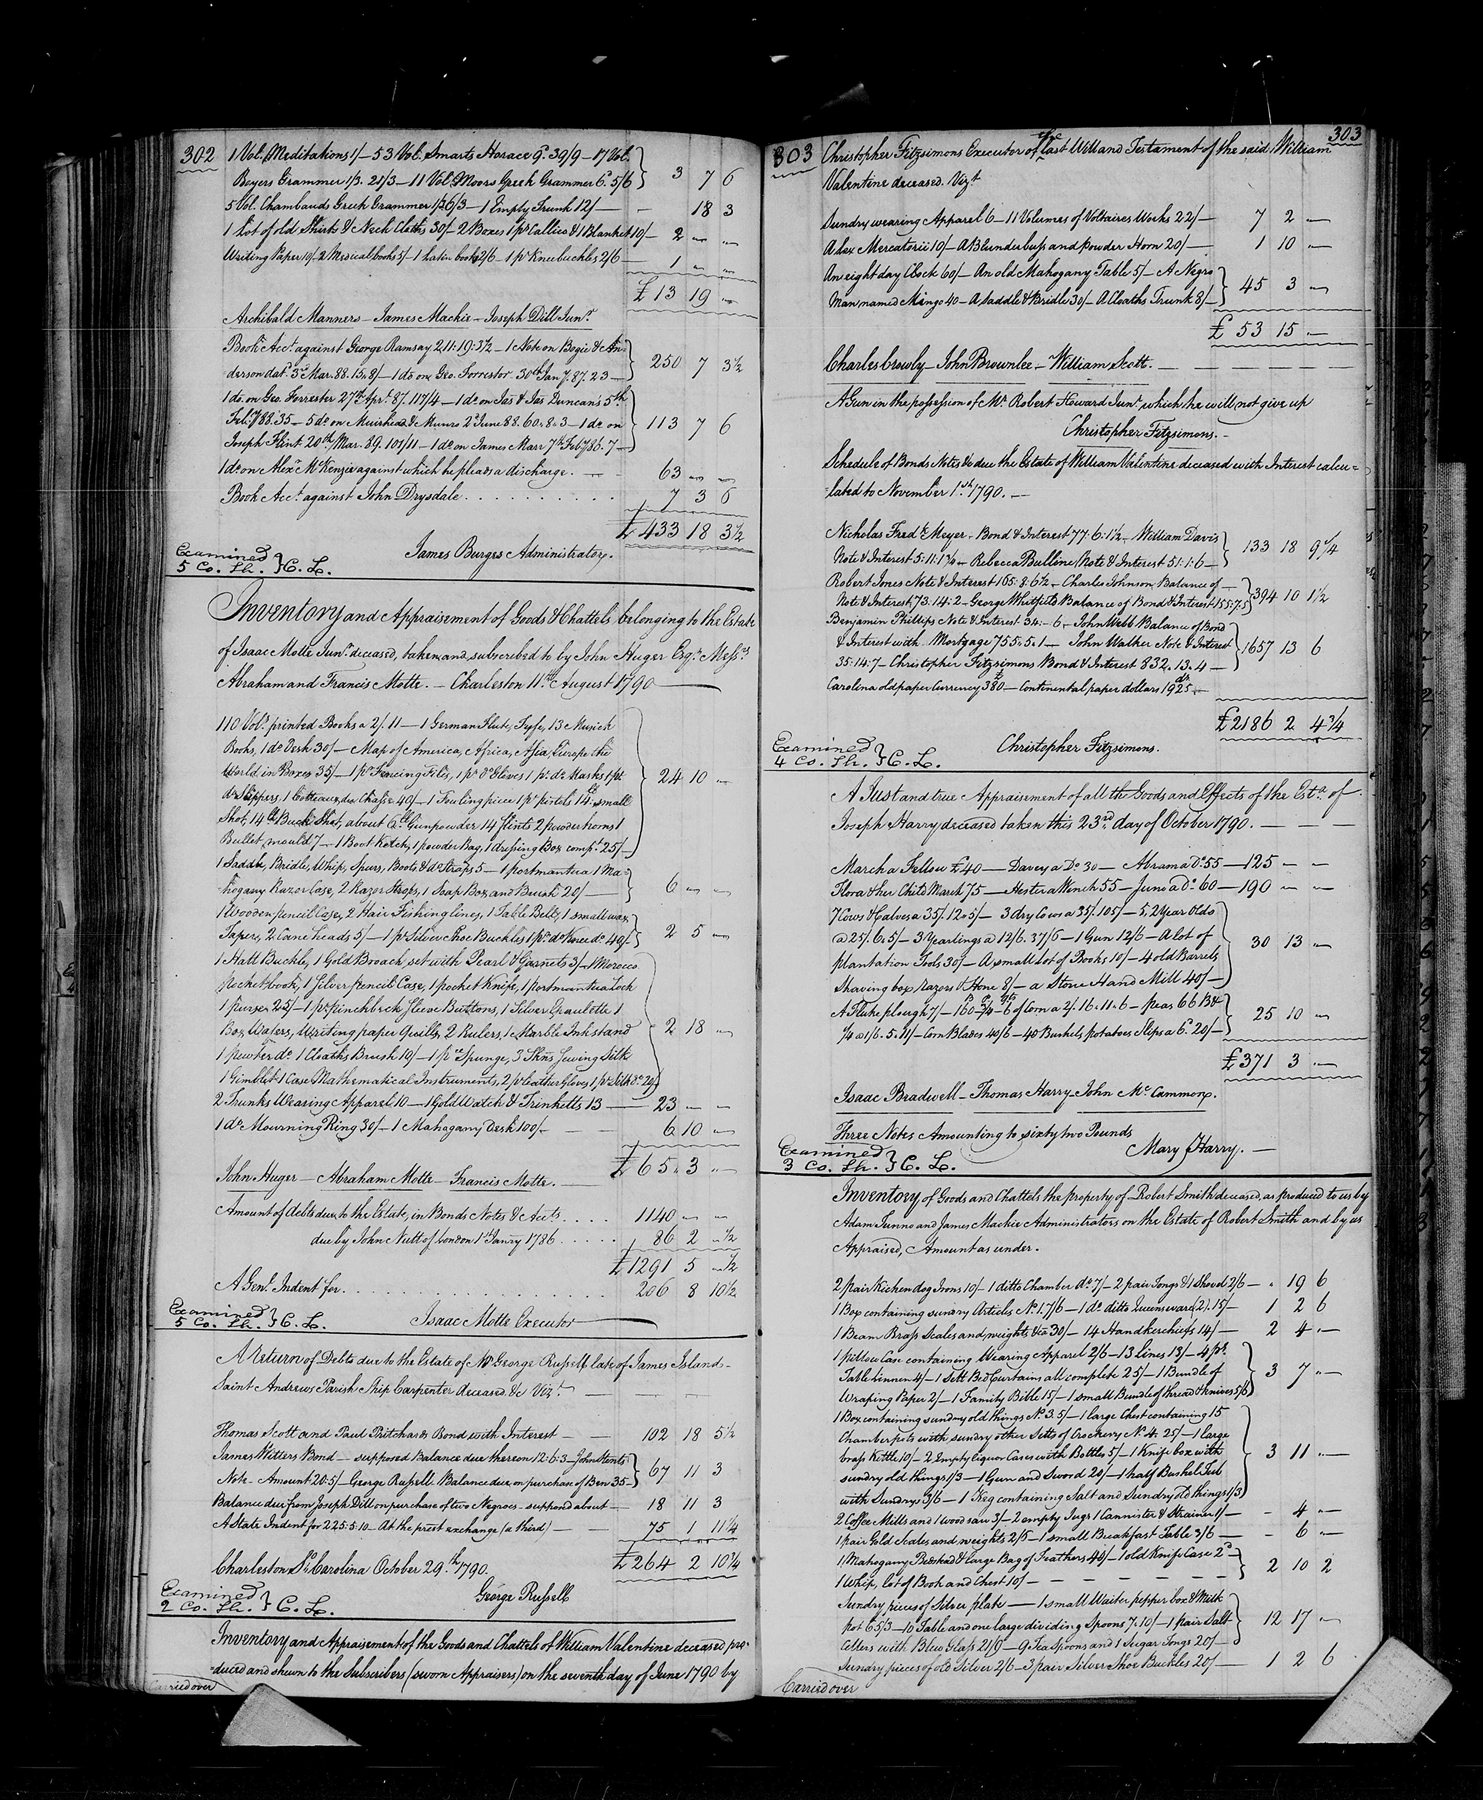 302
1 Vol. Meditations 1/ – 53 Vol. Smarts Horace 9d. 39/9 – 17 Vol.
Boyers Grammer 1/3. 21/3 – 11 Vol. Moors Greek Grammer 6d. 5/6 } 3 7 6
5 Vol. Chambauds Greek Grammer 1/3 6/3 – 1 Empty Trunk 12/ – 18 3
1 Lot of old Shirts & Neck Cloths 30/ – 2 Boxes 1 ps. Callico & 1 Blanket 10/ – 2 „ „
Writing Paper 10/ – 2 Medical books 5/ – 1 Latin book 2/6 – 1 pr. Kneebuckles 2/6 – 1 „ „
£ 13 19 „
Archibald Manners – James Mackie – Joseph Dill Junr.
Book Acct. against George Ramsay 211:19:3½ – 1 Note on Bogie & An-
derson dat. 3d. Mar. 88. 15.8/ – 1 do. on Geo. Forrestor 30th Jany. 87. 23 – } 250 7 3½
1 do. on Geo. Forrester 27th Apr. 87. 117/4 – 1 do. on Jas. & Jas. Duncan's 5th
Feby. 88. 35 – 5 do. on Muirhead & Munro 2d. June 88. 60.8.3 – 1 do. on
Joseph Flint 20th Mar. 89. 101/11 – 1 do. on James Marr 7th Feby. 86. 7 – } 113 7 6
1 do. on Alexr. McKenzie against which he pleads a discharge. – 63 „ „
Book Acct. against John Drysdale . . . . . . . . . . 7 3 6
£ 433 18 3½
Examined
5 Co. Sh. } C. L. James Burges Administrator.
Inventory and Appraisement of Goods & Chattels belonging to the Estate
of Isaac Motte Junr. deceased, taken and subscribed to by John Huger Esqr. Messrs.
Abraham and Francis Motte. – Charleston 11th August 1790
110 Vols. printed Books a 2/. 11 – 1 German Flute, Fife, 13 Musick
Books, 1 do. Desk 30/ – Map of America, Africa, Asia, Europe & the
World in Boxes 35/ – 1 pr. Fencing Files, 1 pr. do. Gloves 1 pr. do. Masks 1 pr.
do. Slippers, 1 Cotteau de Chasse 40/ – 1 Fowling piece 1 pr. pistols 14 lb. small
Shot, 14 lb. Buck Shot, about 6 lb. Gunpowder 14 flints 2 powder horns 1
Bullet mould 7 – 1 Boot Ketch, 1 powder Bag, 1 dressing Box compt. 25/ – } 24 10 „
1 Saddle, Bridle, Whip, Spurs, Boots & do. Straps 5 – 1 portmantua 1 Ma-
hogany Razor Case, 2 Razor Strops, 1 Soap Box and Brush 20/ – } 6 „ „
1 Wooden pencil Case, 2 Hair Fishing lines, 1 Table Bell, 1 small wax
Taper, 2 Cane heads 5/ – 1 pr. Silver Shoe Buckles 1 pr. do. Knee do. 40/ – } 2 5 „
1 Hatt Buckle, 1 Gold Broach set with Pearl & Garnets 3/ – 1 Morocco
pocket book, 1 Silver pencil Case, 1 pocket Knife, 1 portmantua Lock
1 purse 25/ – 1 pr. pinchbeck Sleve Buttons, 1 Silver Graulotte 1
Box Wafers, Writing paper Quills, 2 Rulers, 1 Marble Inkstand
1 pewter do. 1 Cloaths Brush 10/ – 1 pce. Spunge, 3 Skns. Sewing Silk
1 Gimblet 1 Case Mathematical Instruments, 2 pr. leather Gloves 1 pr. Silk do. 20/ } 2 18 „
2 Trunks Wearing Apparel 10 – 1 Gold Watch & Trinketts 13 – 23 „ „
1 do. Mourning Ring 30/ – 1 Mahogany Desk 100/ – 6 10 „
£ 65 3 „
John Huger – Abraham Motte – Francis Motte. –
Amount of debts due to the Estate, in Bonds Notes & Accts. . . . . 1140 „ „
due by John Nutt of London 1st. Janry 1786 . . . . . 86 2 „½
£ 1291 5 „½
A Genl. Indent for . . . . . . . . . . 206 8 10½
Examined
5 Co. Sh. } C. L. Isaac Motte Executor
A Return of Debts due to the Estate of Mr. George Russell late of James Island –
Saint Andrews Parish Ship Carpenter deceased &c Vizt. –
Thomas Scott and Paul Pritchards Bond with Interest – 102 18 5½
James Witters Bond – supposed Balance due thereon 12:6:3 – John Stents
Note. Amount 20:5/ – George Russell Balance due on purchase of Ben 35 – } 67 11 3
Balance due from Joseph Dill on purchase of two Negroes – supposd about – 18 11 3
A State Indent for 225:5:10 – At the prest. exchange (a third) – 75 1 11¼
£ 264 2 10¾
Charleston So. Carolina October 29th 1790.
George Russell
Examined
2 Co. Sh. } C. L.
Inventory and Appraisement of the Goods and Chattels of William Valentine deceased pro-
duced and shewn to the Subscribers (sworn Appraisers) on the seventh day of June 1790 by
Carried over
303
303 Christopher Fitzsimons Executor of the last Will and Testament of the said William
Valentine deceased. Vizt.
Sundry wearing Apparel 6 – 11 Volumes of Voltaires Works 22/ – 7 2 „
A Lex Mercatoria 10/ – A Blunderbuss and powder Horn 20/ – 1 10 „
An eight day Clock 60/ – An old Mahogany Table 5/ – A Negro
Man named Mingo 40 – A Saddle & Bridle 30/ – A Cloaths Trunk 8/ – } 45 3 „
£ 53 15 –
Charles Crowly – John Brownlee – William Scott. –
A Gun in the possession of Mr. Robert Howard Junr. which he will not give up
Christopher Fitzsimons. –
Schedule of Bonds Notes &c due the Estate of William Valentine deceased with Interest calcu-
lated to November 1st. 1790. –
Nicholas Fredk. Meyer – Bond & Interest 77:6:1½ – William Davis
Note & Interest 5:11:1¾ – Rebecca Bulline, Note & Interest 51:1:6 – } 133 18 9¼
Robert Jones Note & Interest 165:8:6½ – Charles Johnson Balance of –
Note & Interest 73:14:2 – George Whitfields Balance of Bond & Interest 155:7:5 } 394 10 1½
Benjamin Phillips Note & Interest 34:–6 – John Webb Balance of Bond
& Interest with Mortgage 755:5:1 – John Walker Note & Interest
35:14:7 – Christopher Fitzsimons Bond & Interest 832.13.4 – } 1657 13 6
Carolina old paper Currency £380 – Continental paper dollars 1925 drs. –
£ 2186 2 4¾
Christopher Fitzsimons.
Examined
4 Co. Sh. } C. L.
A Just and true Appraisement of all the Goods and Effects of the Esta. of
Joseph Harry deceased taken this 23rd. day of October 1790. –
March a Fellow £40 – Davey a Do. 30 – Abram a Do. 55 – 125 – –
Flora & her Child March 75 – Hester a Wench 55 – June a Do. 60 – 190 – –
7 Cows & Calves a 35/. 12.5/ – 3 dry Cows a 35/. 105/ – 5, 2 Year Olds
a 25/. 6.5/ – 3 Yearlings a 12/6. 37/6 – 1 Gun 12/6 – A lot of
plantation Tools 30/ – A small Lot of Books 10/ – 4 old Barrels
Shaving box Razors & Hone 8/ – a Stone Hand Mill 40/ – } 30 13 „
A Fluke plough 7/ – 160 Bs. 3 Ps. 6 qts. of Corn a 2/. 16.11.6 – Peas 66 Bs. &
¼ a 1/6. 5.11/ – Corn Blades 40/6 – 40 Bushels potatoes Slips a 6d. 20/ – } 25 10 „
£ 371 3 „
Isaac Bradwell – Thomas Harry – John McCammon.
Three Notes Amounting to sixty two Pounds
Mary Harry. –
Examined
3 Co. Sh. } C. L.
Inventory of Goods and Chattels the property of Robert Smith deceased, as produced to us by
Adam Tunno and James Mackie Administrators on the Estate of Robert Smith and by us
Appraised, Amount as under.
2 pair Kichen dog Irons 10/ – 1 ditto Chamber do. 7/ – 2 pair Tongs & 1 Shovel 2/6 – „ 19 6
1 Box containing sundry Articles No. 1. 7/6 – 1 do. ditto Queensware (2). 15/ – 1 2 6
1 Beam Brass Scales and weights &ca. 30/ – 14 Handkerchiefs 14/ – 2 4 „
1 pillow Case containing Wearing Apparel 2/6 – 13 Lines 13/ – 4 ps.
Table linnen 4/ – 1 Sett Bed Curtains all complete 25/ – 1 Bundle of
Wraping Paper 2/ – 1 Family Bible 15/ – 1 small Bundle of thread & knives 5/6 } 3 7 „
1 Box containing sundry old things No. 3. 5/ – 1 large Chest containing 15
Chamberpots with sundry other Setts of Crockery No. 4. 25/ – 1 large
brass Kettle 10/ – 2 Empty liquor Cases with Bottles 5/ – 1 Knife box with
sundry old things 1/3 – 1 Gun and Sword 20/ – 1 half Bushel Tub
with Sundrys 3/6 – 1 Keg containing Salt and Sundry old things 1/3 } 3 11 „
2 Coffee Mills and 1 wood saw 3/ – 2 empty Jugs 1 Cannister & Strainer 1/ – – 4 „
1 pair Gold Scales and weights 2/6 – 1 small Breakfast Table 3/6 – – 6 „
1 Mahogany Bedstead & large Bag of Feathers 40/ – 1 old Knife Case 2d. –
1 Whip, lot of Books and Chest 10/ – } 2 10 2
Sundry pieces of Silver plate – 1 small Waiter pepper box & Milk
pot 65/3 – 10 Table and one large dividing Spoons 7.10/ – 1 pair Salt
Cellers with Blue Glass 21/9 – 9 Tea Spoons and 1 Sugar Tongs 20/ – } 12 17 „
Sundry pieces of old Silver 2/6 – 3 pair Silver Shoe Buckles 20/ – 1 2 6
Carried over